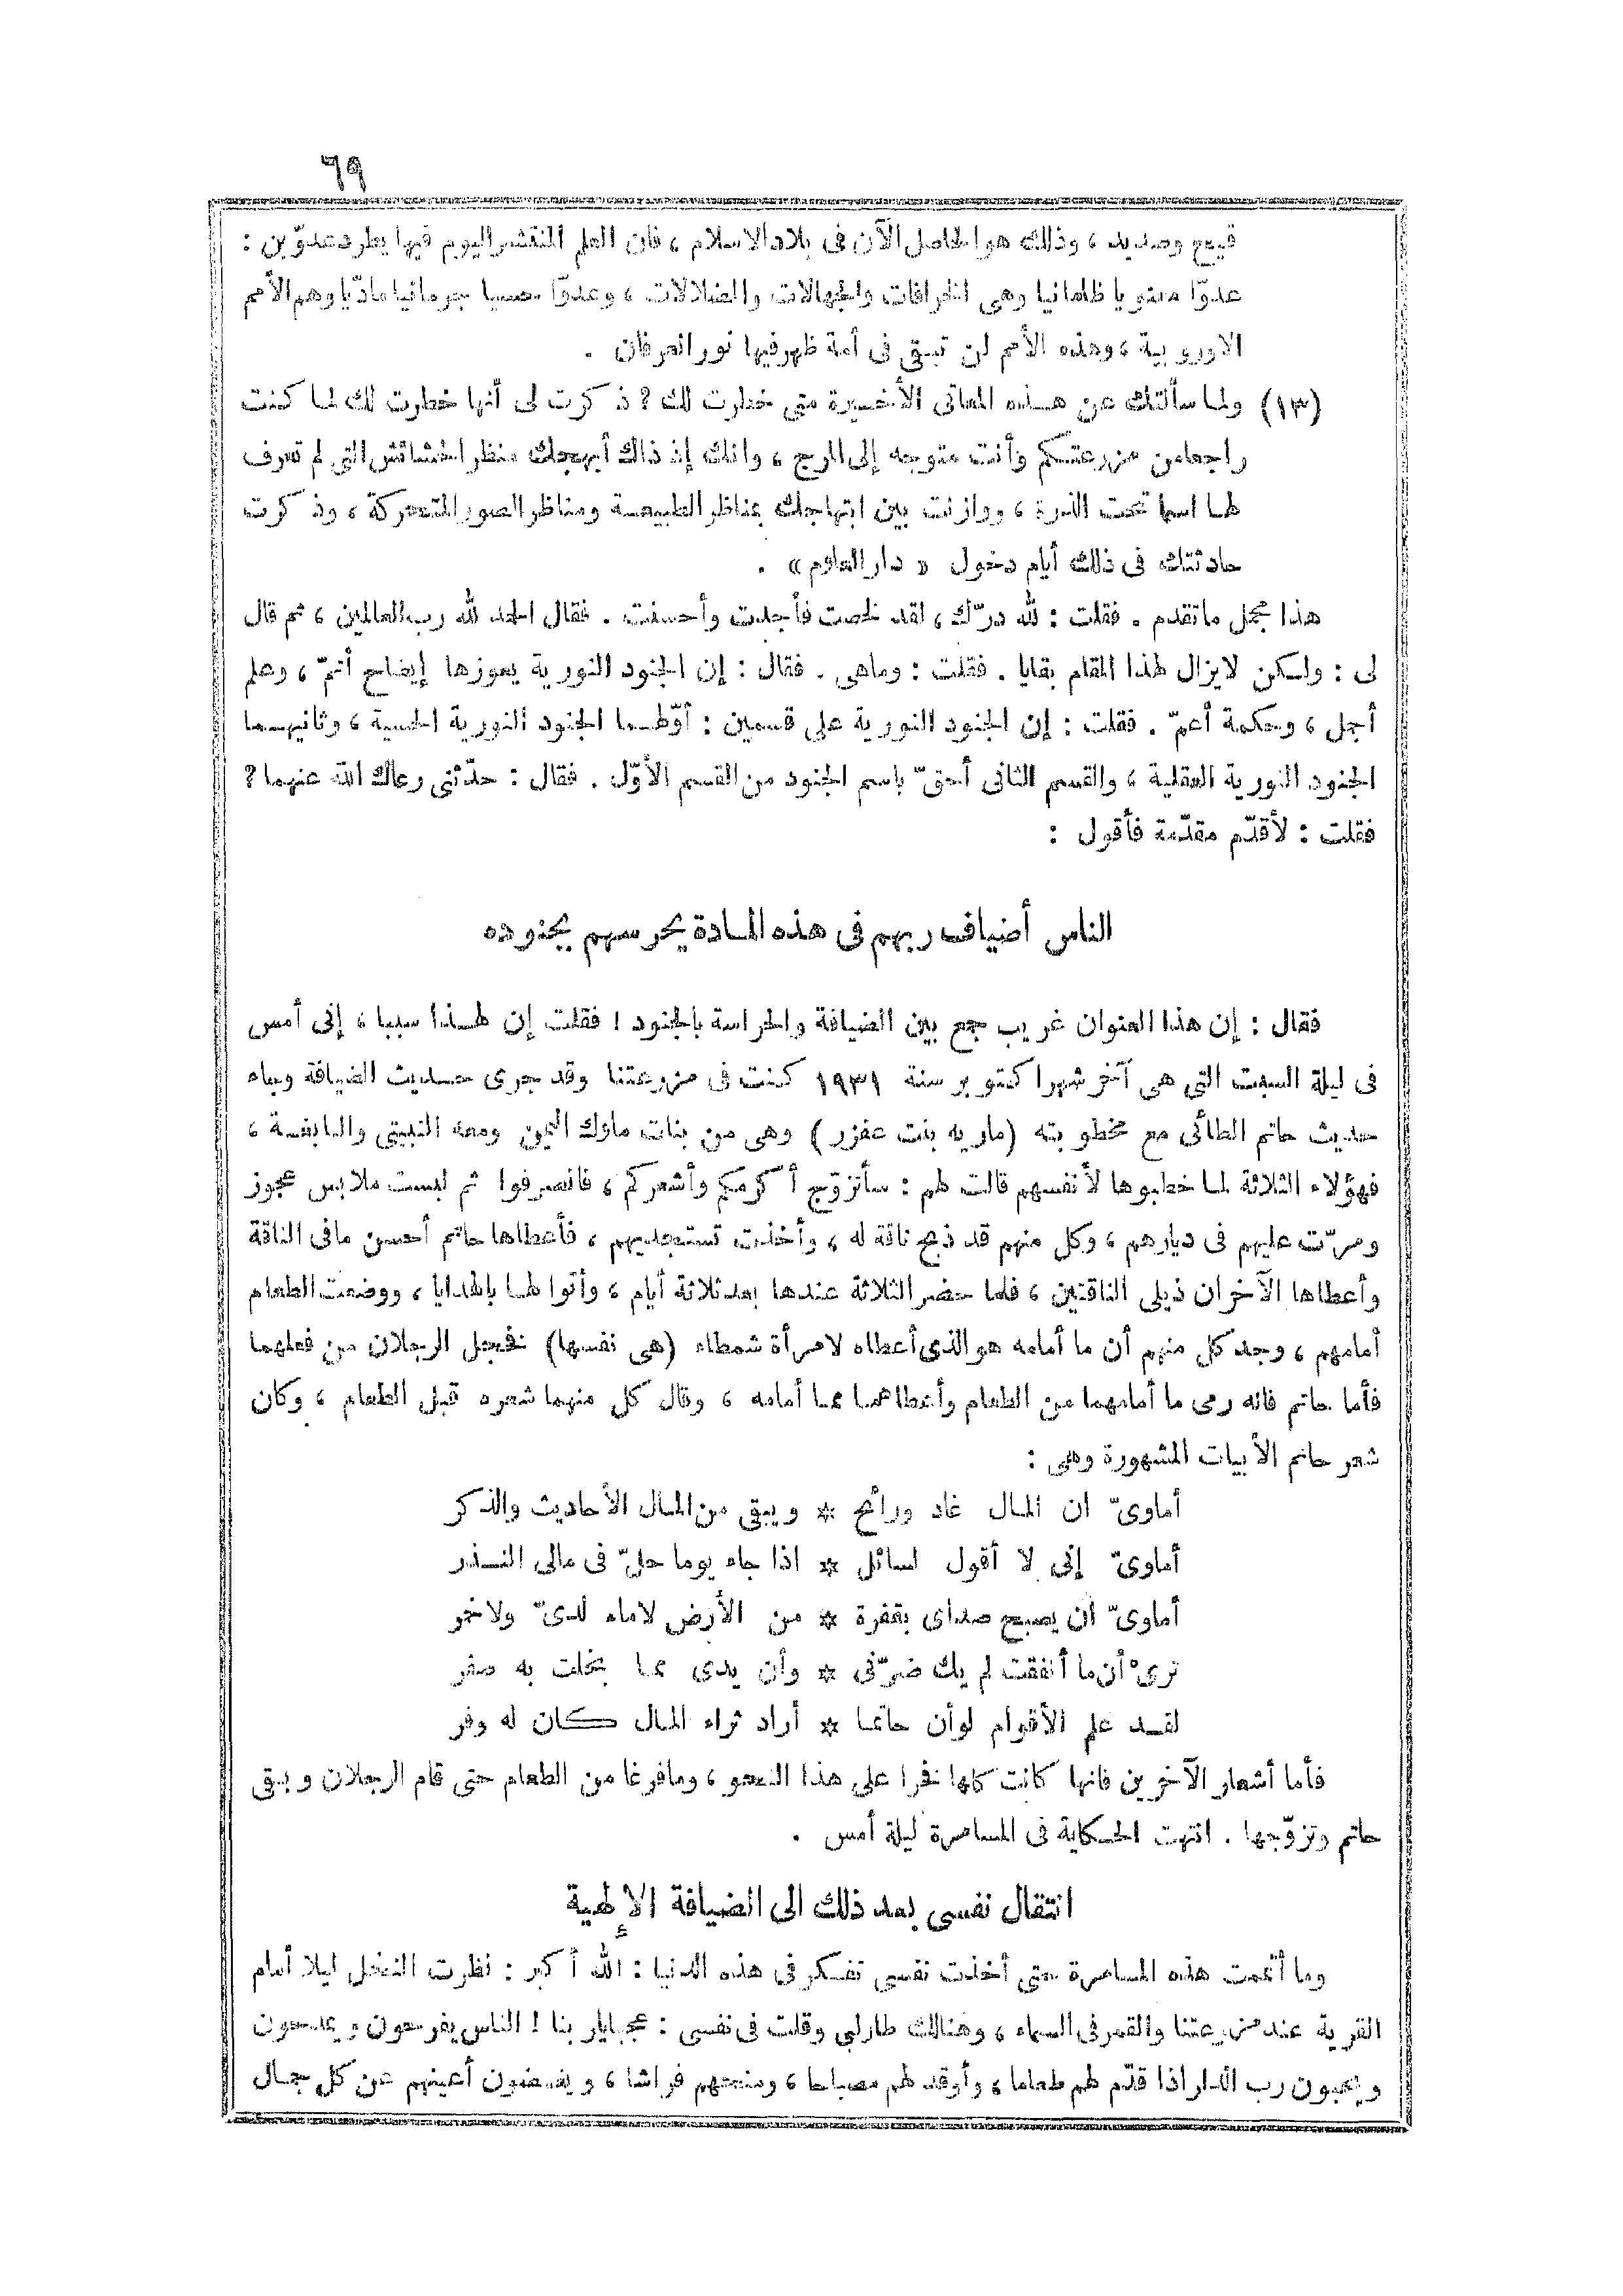 ٦٩
قيح وصديد ، وذلك هو الحاصل الآن فى بلاد الاسلام ، فان العلم المنتشر اليوم فيها يطرد عدوّين :
عدوّا معنويا ظلمانيا وهى الخرافات والجهالات والضلالات ، وعدوّا حسيا جرمانيا مادّيا وهم الأمم
الاوروبية ، وهذه الأمم لن تبقى فى أمة ظهر فيها نور العرفان .
(١٣) ولما سألتك عن هذه المعانى الأخيرة متى خطرت لك ? ذكرت لى أنها خطرت لك لما كنت
راجعا من مزرعتكم وأنت متوجه إلى المرج ، وانك إذ ذاك أبهجك منظر الحشائش التى لم تعرف
لها اسما تحت الذرة ، ووازنت بين ابتهاجك بمناظر الطبيعة ومناظر الصور المتحركة ، وذكرت
حادثتك فى ذلك أيام دخول « دار العلوم » .
هذا مجمل ماتقدم . فقلت : لله درّك ، لقد لخصت فأجدت وأحسنت . فقال الحمد لله رب العالمين ، ثم قال
لى : ولكن لايزال لهذا المقام بقايا . فقلت : وماهى . فقال : إن الجنود النورية يعوزها إيضاح أتمّ ، وعلم
أجل ، وحكمة أعمّ . فقلت : إن الجنود النورية على قسمين : أوّلهما الجنود النورية الحسية ، وثانيهما
الجنود النورية العقلية ، والقسم الثانى أحقّ باسم الجنود من القسم الأوّل . فقال : حدّثنى رعاك الله عنهما ?
فقلت : لأقدّم مقدّمة فأقول :
الناس أضياف ربهم فى هذه المادة يحرسهم بجنوده
فقال : إن هذا العنوان غريب جمع بين الضيافة والحراسة بالجنود ! فقلت إن لهذا سببا ، إنى أمس
فى ليلة السبت التى هى آخر شهر اكتوبر سنة ١٩٣١ كنت فى مزرعتنا وقد جرى حديث الضيافة وجاء
حديث حاتم الطائى مع مخطوبته (ماريه بنت عفزر) وهى من بنات ملوك اليمن ومعه النبيتى والنابغة ،
فهؤلاء الثلاثة لما خطبوها لأنفسهم قالت لهم : سأتزوّج أكرمكم وأشعركم ، فانصرفوا ثم لبست ملابس عجوز
ومرّت عليهم فى ديارهم ، وكل منهم قد ذبح ناقة له ، وأخذت تستجديهم ، فأعطاها حاتم أحسن مافى الناقة
وأعطاها الآخران ذيلى الناقتين ، فلما حضر الثلاثة عندها بعد ثلاثة أيام ، وأتوا لها بالهدايا ، ووضعت الطعام
أمامهم ، وجد كل منهم أن ما أمامه هو الذى أعطاه لامرأة شمطاء (هى نفسها) فخجل الرجلان من فعلهما
فأما حاتم فانه رمى ما أمامهما من الطعام وأعطاهما مما أمامه ، وقال كل منهما شعره قبل الطعام ، وكان
شعر حاتم الأبيات المشهورة وهى :
أماوىّ ان المال غاد ورائح * ويبقى من المال الأحاديث والذكر
أماوىّ إنى لا أقول لسائل * اذا جاء يوما حلّ فى مالى النذر
أماوىّ ان يصبح صداى بقفرة * من الأرض لاماء لدىّ ولا خمر
ترىْ أن ما أنفقت لم يك ضرّنى * وأن يدى مما بخلت به صفر
لقد علم الأقوام لو أن حاتما * أراد ثراء المال كان له وفر
فأما أشعار الآخرين فانها كانت كلها فخرا على هذا النحو ، ومافرغا من الطعام حتى قام الرجلان وبقى
حاتم وتزوّجها . انتهت الحكاية فى المسامرة ليلة أمس .
انتقال نفسى بعد ذلك الى الضيافة الإلهية
وما أتممت هذه المسامرة حتى أخذت نفسى تفكر فى هذه الدنيا : الله أكبر : نظرت النخل ليلا أمام
القرية عند مزرعتنا والقمر فى السماء ، وهنالك طار لبى وقلت فى نفسى : عجبا يار بنا ! الناس يفرحون ويمدحون
ويحبون رب الدار اذا قدّم لهم طعاما ، وأوقد لهم مصباحا ، ومنحهم فراشا ، ويغمضون أعينهم عن كل جمال